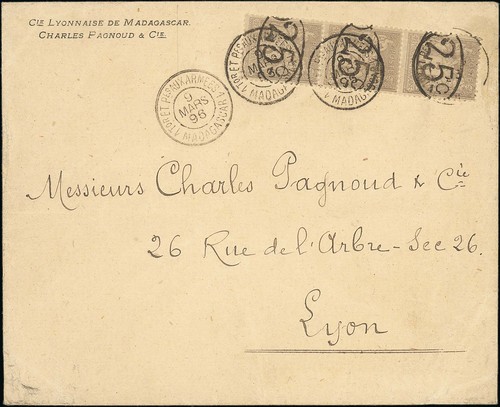 Cie Lyonnaise de Madagascar.
Charles Pagnoud & Cie.
25
25
25
9
MARS
96
MADAGASCAR
Messieurs Charles Pagnoud & Cie
26 Rue de l'Arbre-Sec 26.
Lyon